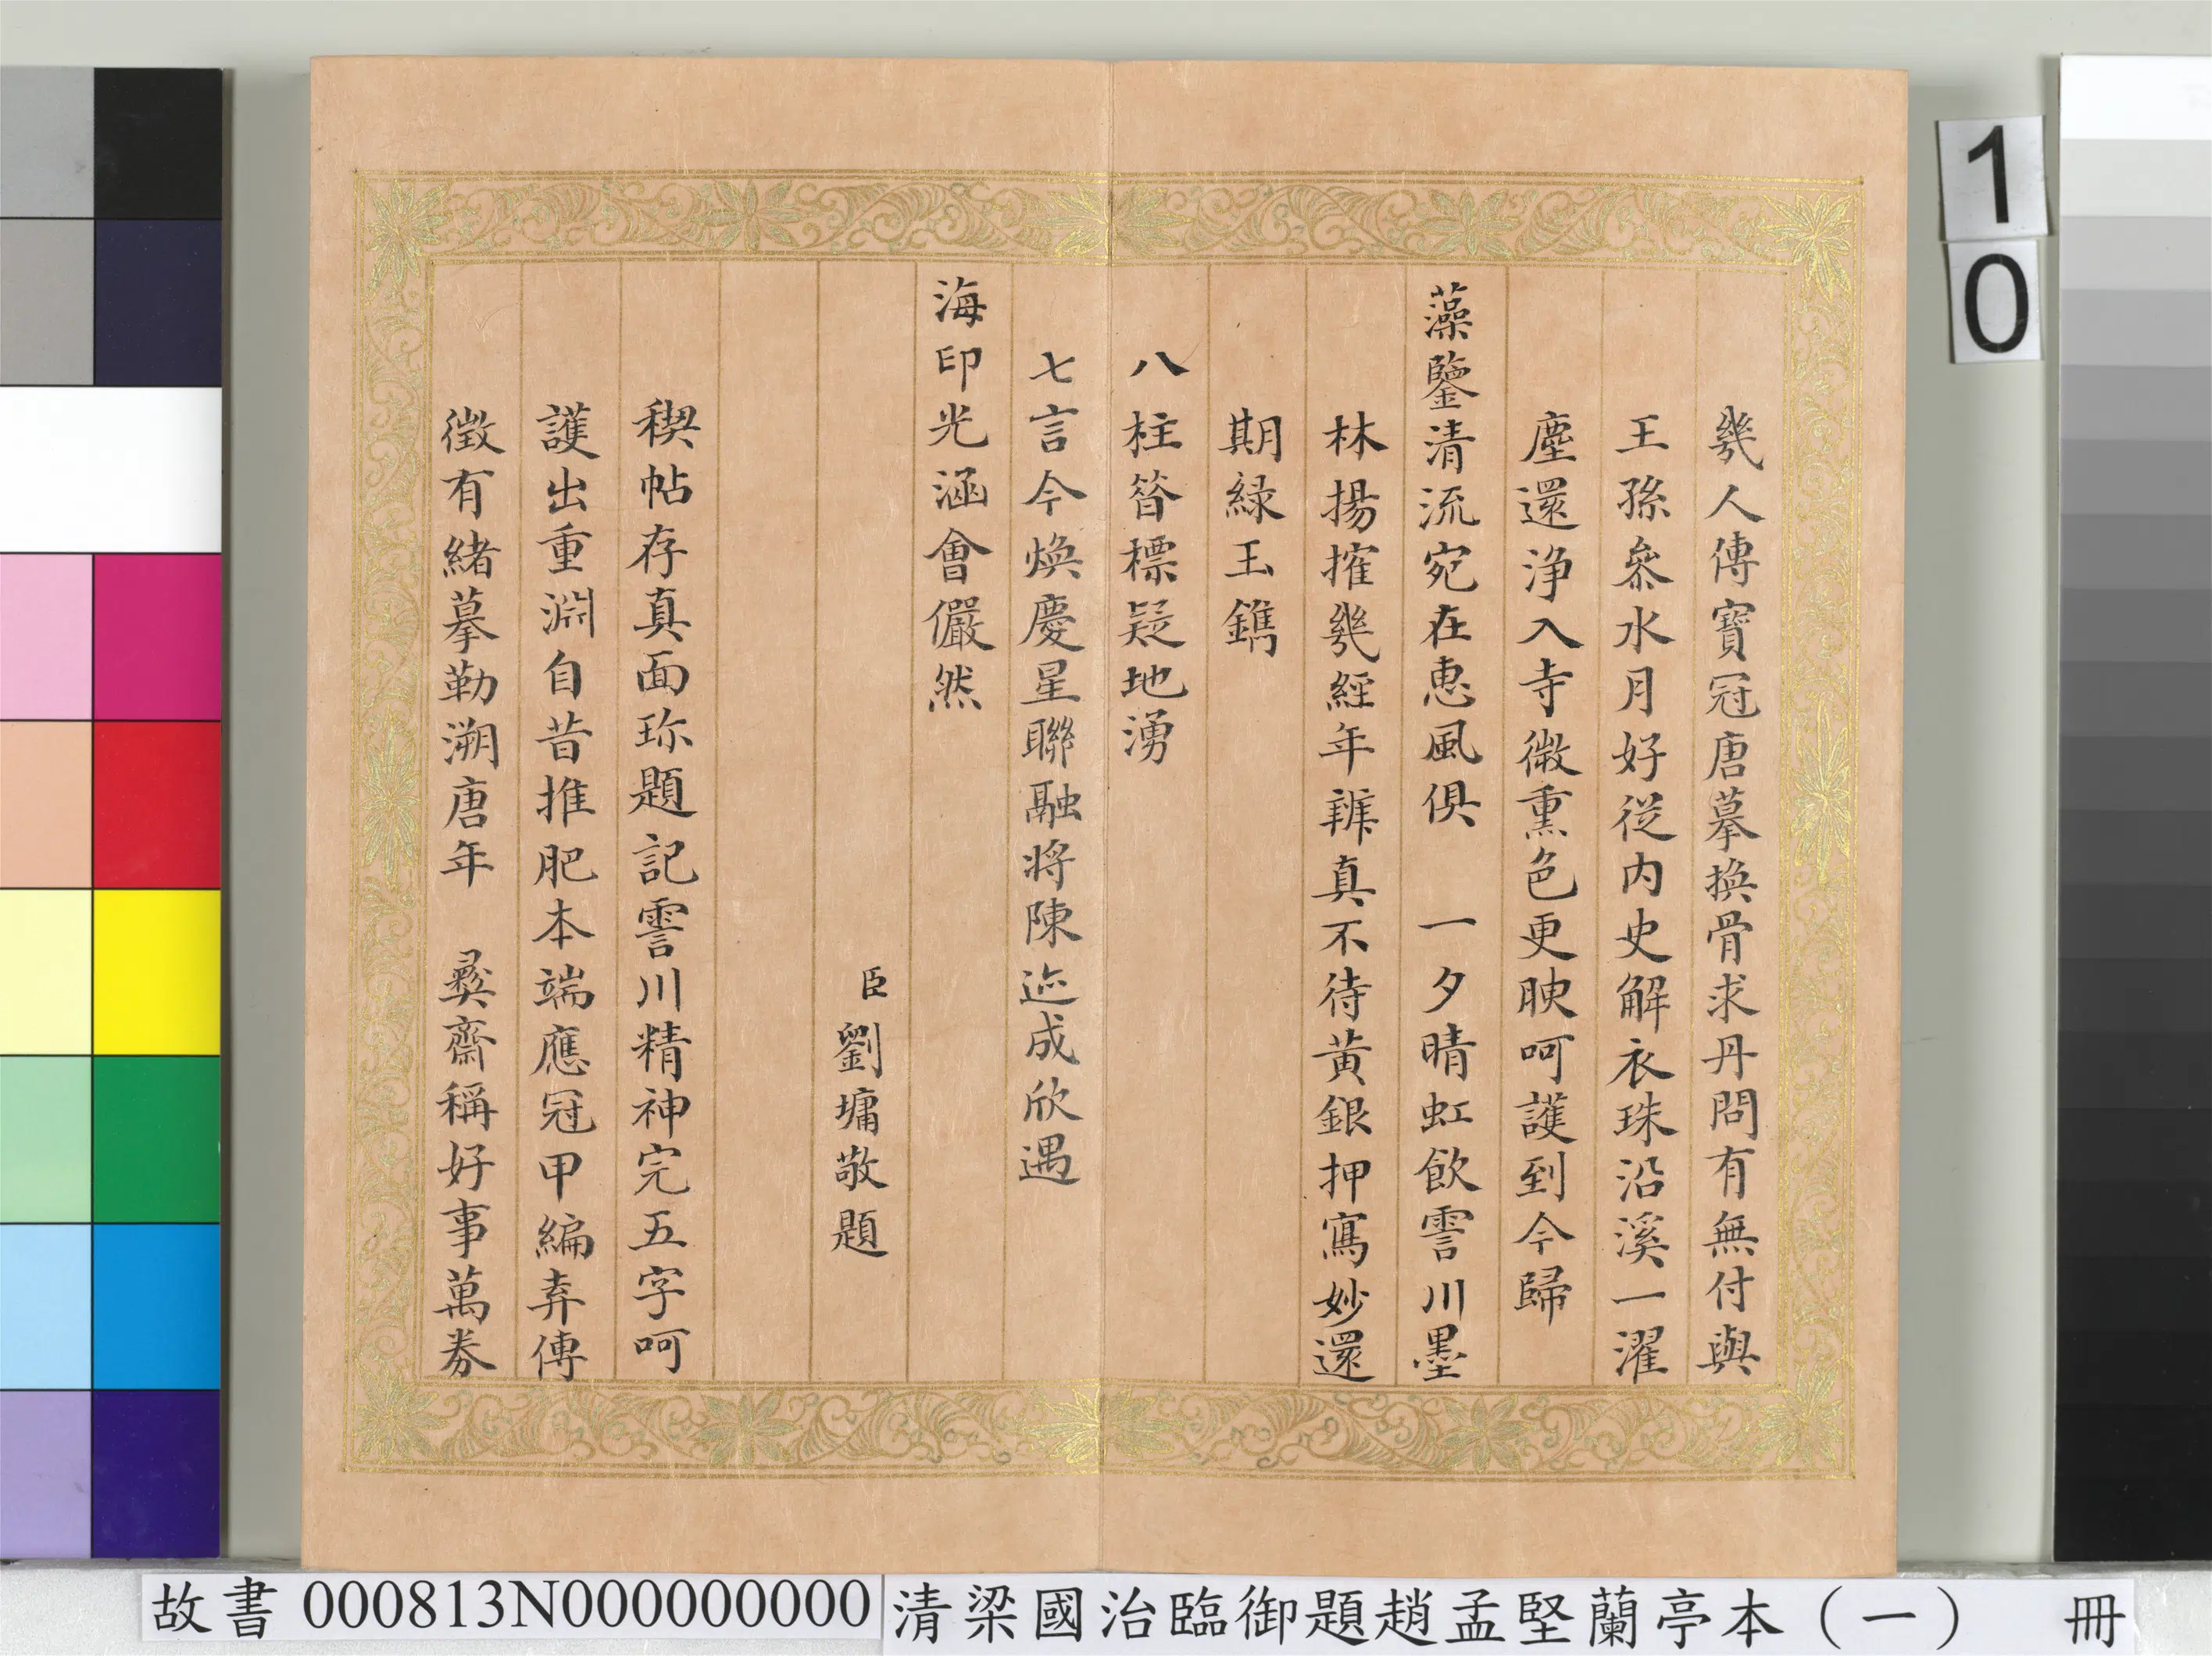 幾人傳寶冠唐摹換骨求丹問有無付與
王孫叅水月好從內史解衣珠沿溪一濯
塵還浄入寺微熏色更腴呵護到今歸
藻鑒清流宛在惠風俱　一夕晴虹飲霅川墨
林揚搉幾經年辨真不待黃銀押寫妙還
期綠玉鐫
八柱昝標疑地湧
七言今煥慶星聯融將陳迹成欣遇
海印光涵會儼然
臣劉墉敬題
稧帖存真面珎題記霅川精神完五字呵
護出重淵自昔推肥本端應冠甲編弆傳
徵有緒摹勒溯唐年　彝齋稱好事萬券
10
故書000813N000000000
清梁國治臨御題趙孟堅蘭亭本（一）　冊